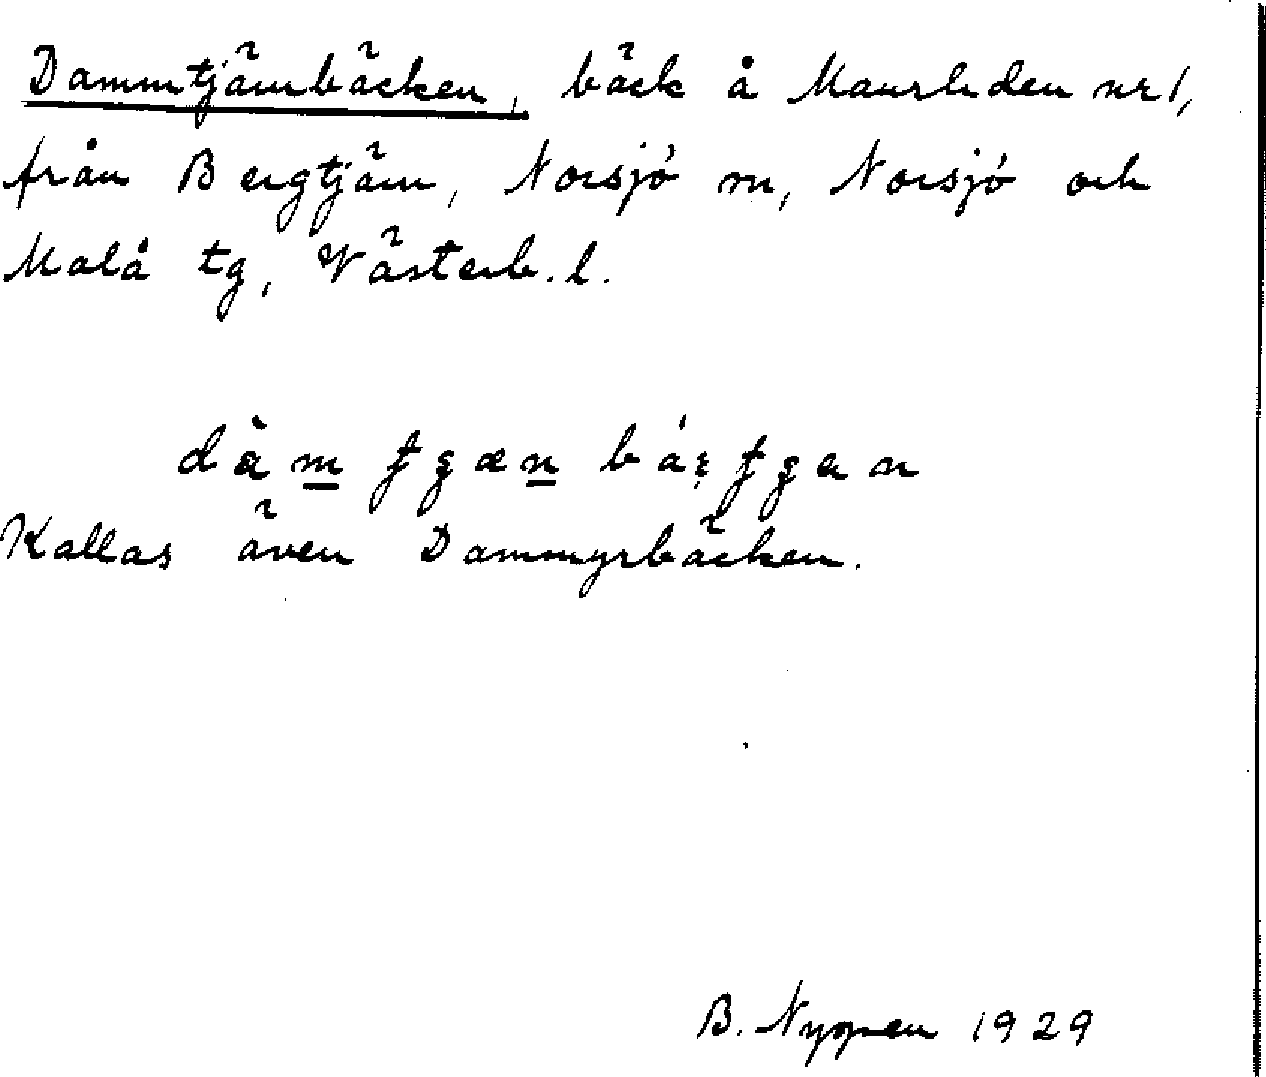 Dammtjärnbäcken, bäck å Maurliden nr 1,
från Bergtjärn, Norsjö sn, Norsjö och
Malå tg, Västerb. l.
Kallas även Dammyrbäcken.
B. Nyppen 1929